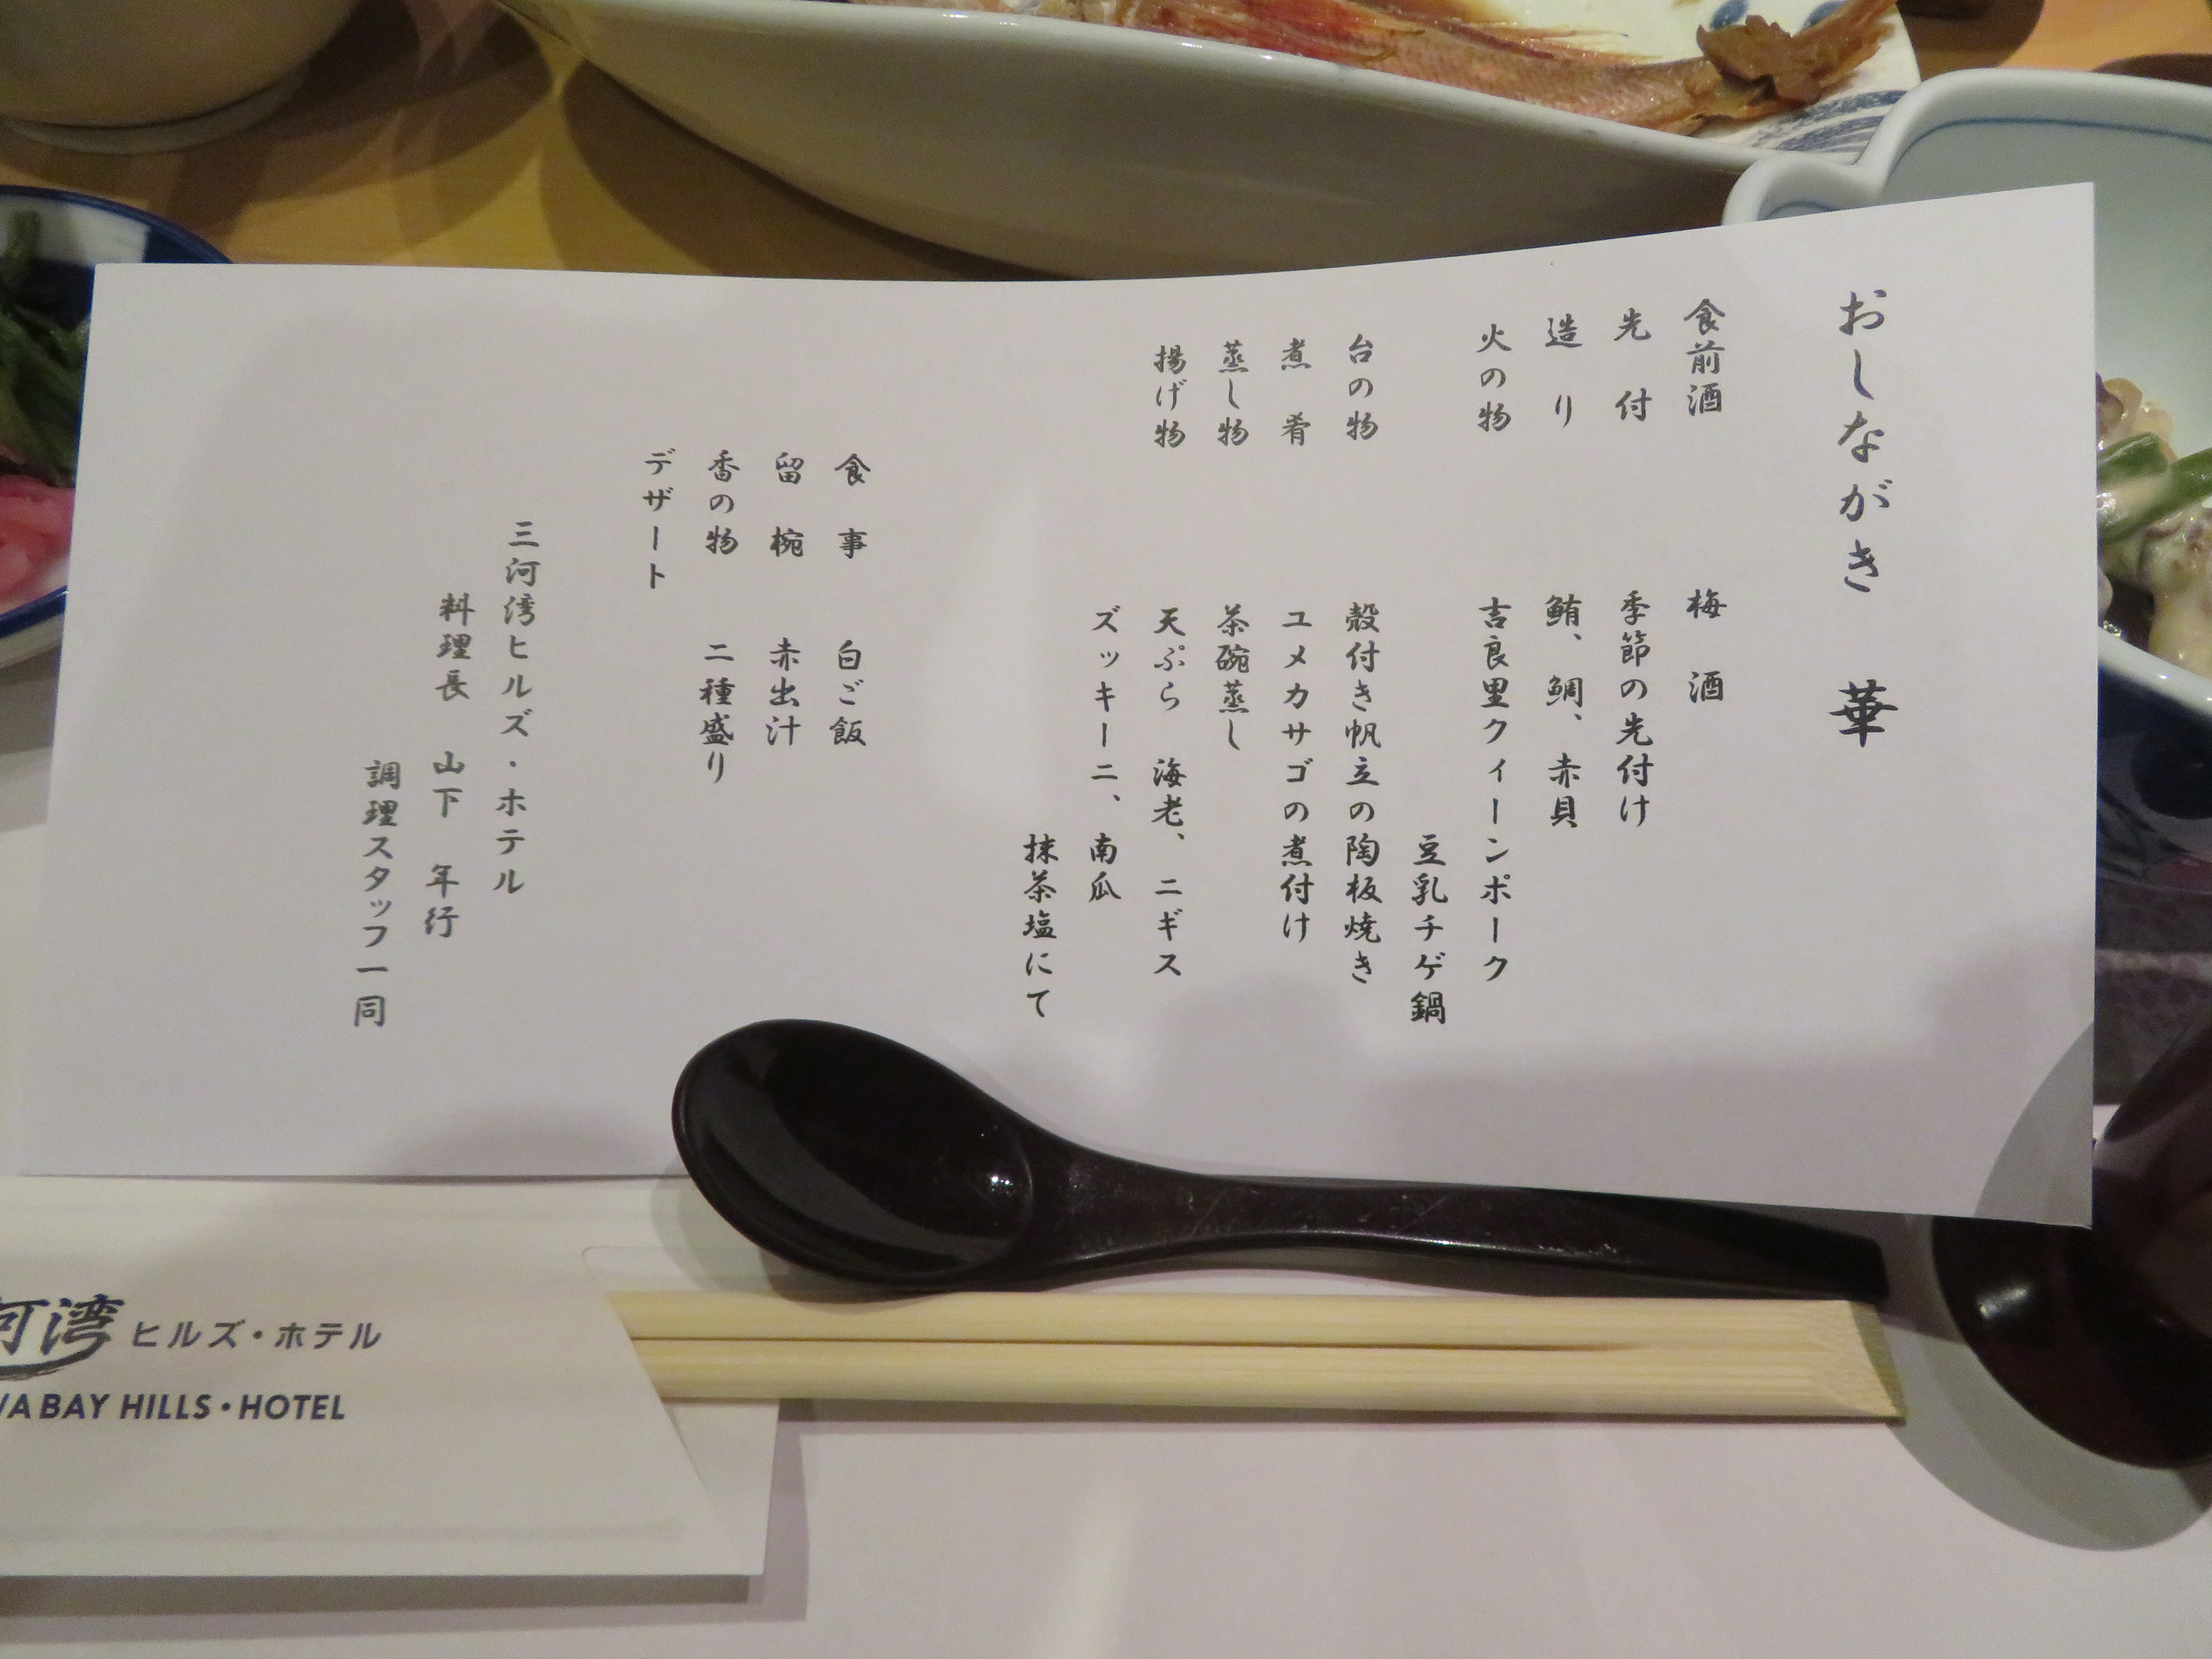 おしながき 華
食前酒 梅酒
先付 季節の先付け
造り 鮪、鯛、赤貝
火の物 吉良里クィーンポーク
豆乳チゲ鍋
台の物 殻付き帆立の陶板焼き
煮肴 ユメカサゴの煮付け
蒸し物 茶碗蒸し
揚げ物 天ぷら 海老、ニギス
ズッキーニ、南瓜
抹茶塩にて
食事 白ご飯
留椀 赤出汁
香の物 二種盛り
デザート
三河湾ヒルズ・ホテル
料理長 山下 年行
調理スタッフ一同
河湾 ヒルズ・ホテル
WA BAY HILLS・HOTEL